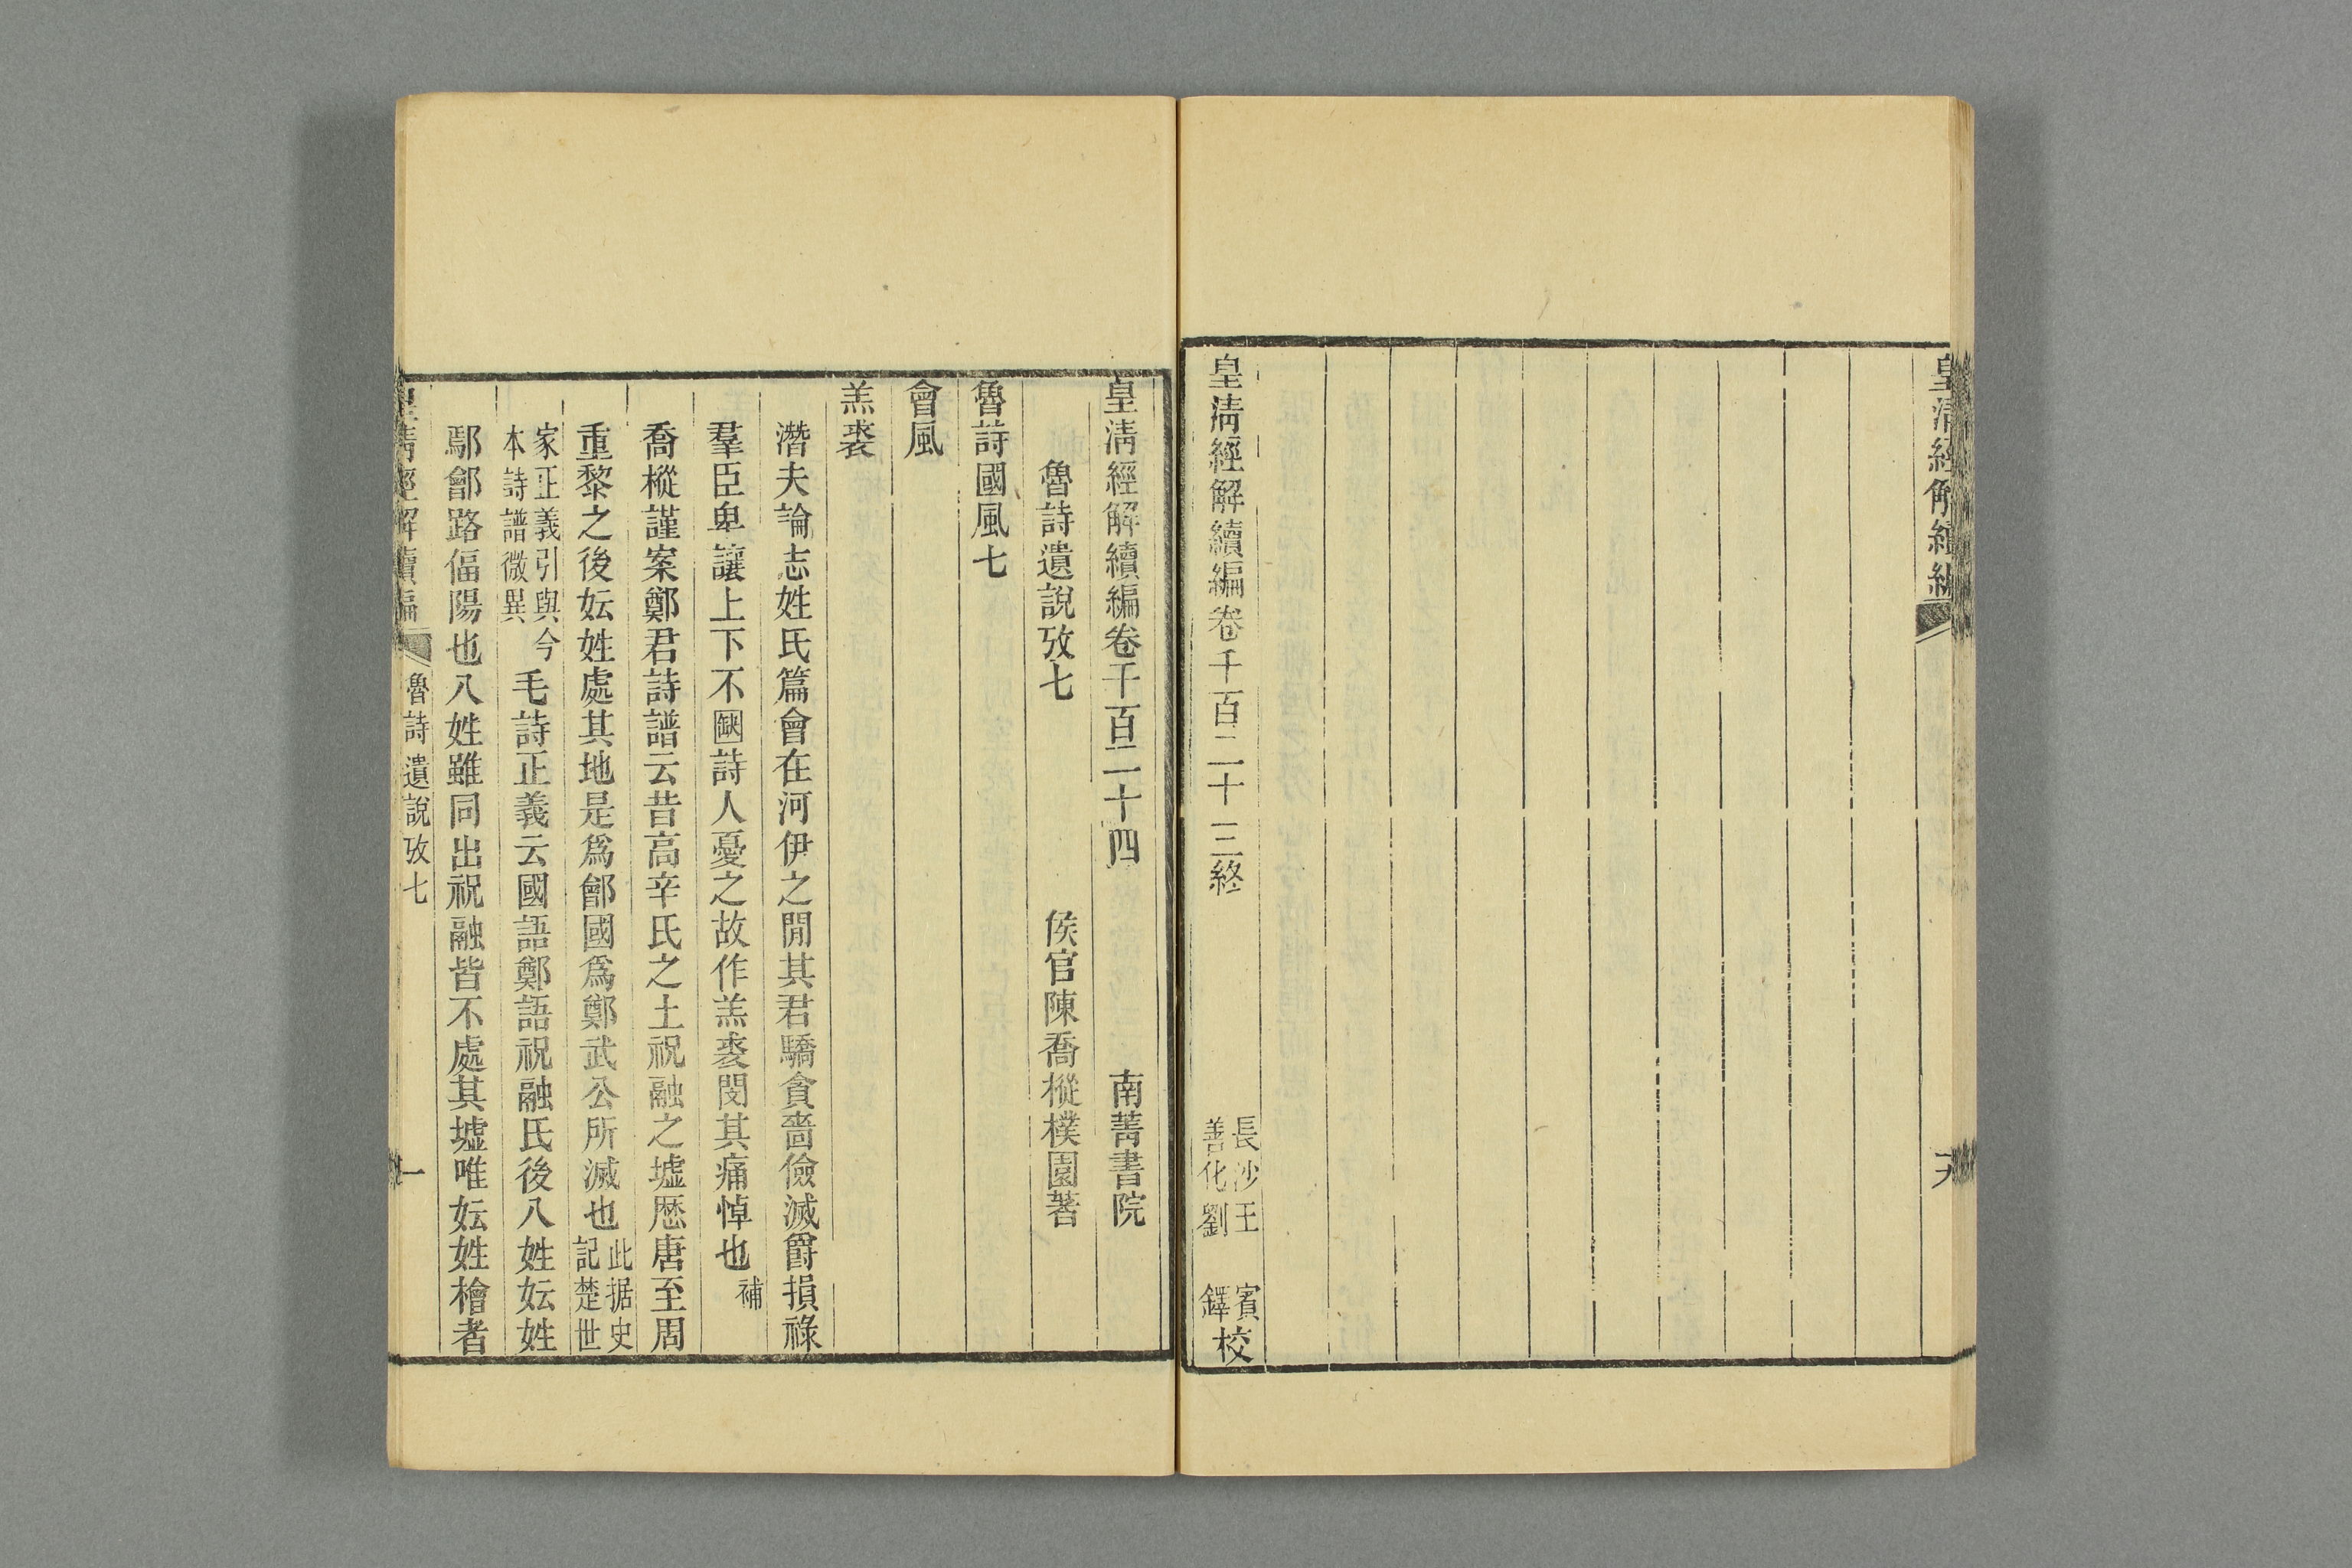 皇清經解續編
皇清經解續編卷千百二十三終
長沙王　賓
善化劉　鐸
校
皇清經解續編卷千百二十四　南菁書院
魯詩遺說攷七　侯官陳喬樅樸園著
魯詩國風七
會風
羔裘
潛夫論志姓氏篇會在河伊之閒其君驕貪嗇儉滅爵損祿
羣臣卑讓上下不缺詩人憂之故作羔裘閔其痛悼也補
喬樅謹案鄭君詩譜云昔高辛氏之土祝融之墟歷唐至周
重黎之後妘姓處其地是爲鄶國爲鄭武公所滅也此据史
記楚世
家正義引與今
本詩譜微異
毛詩正義云國語鄭語祝融氏後八姓妘姓
鄢鄶路偪陽也八姓雖同出祝融皆不處其墟唯妘姓檜者
皇清經解續編
魯詩遺說攷七
一